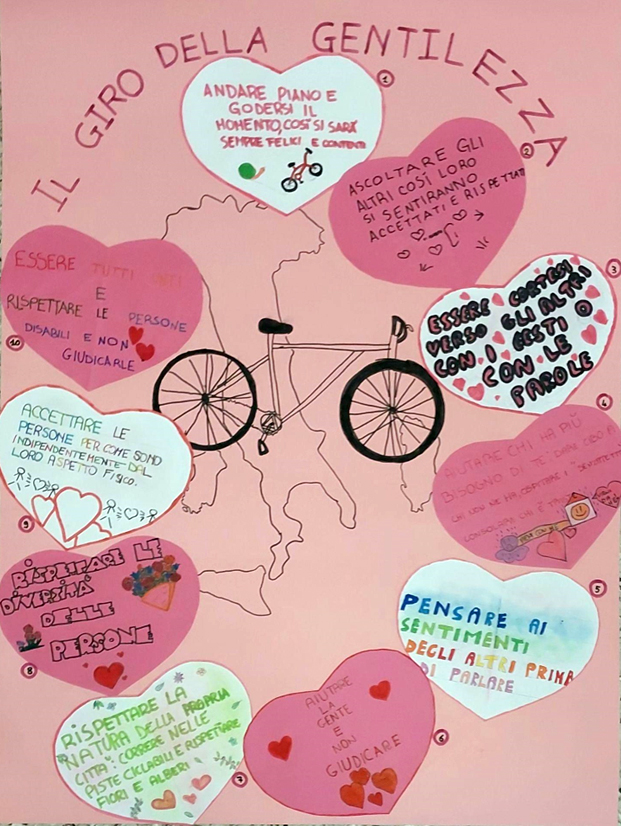 IL GIRO DELLA GENTILEZZA
1
ANDARE PIANO E
GODERSI IL
MOMENTO, COSÌ SI SARÀ
SEMPRE FELICI E CONTENTI
2
ASCOLTARE GLI
ALTRI COSÌ LORO
SI SENTIRANNO
ACCETTATI E RISPETTATI
3
ESSERE CORTESI
VERSO GLI ALTRI
CON I GESTI O
CON LE
PAROLE
4
AIUTARE CHI HA PIÙ
BISOGNO DI TE: DARE CIBO A
CHI NON NE HA, OSPITARE I
CONSOLARE CHI È
5
PENSARE AI
SENTIMENTI
DEGLI ALTRI PRIMA
DI PARLARE
6
AIUTARE
LA
GENTE
E
NON
GIUDICARE
7
RISPETTARE LA
NATURA DELLA PROPRIA
CITTÀ: CORRERE NELLE
PISTE CICLABILI E RISPETTARE
FIORI E ALBERI
8
RISPETTARE LE
DIVERSITÁ
DELLE
PERSONE
9
ACCETTARE LE
PERSONE PER COME SONO
INDIPENDENTEMENTE DAL
LORO ASPETTO FISICO.
10
ESSERE TUTTI UNITI
E
RISPETTARE LE PERSONE
DISABILI E NON
GIUDICARLE